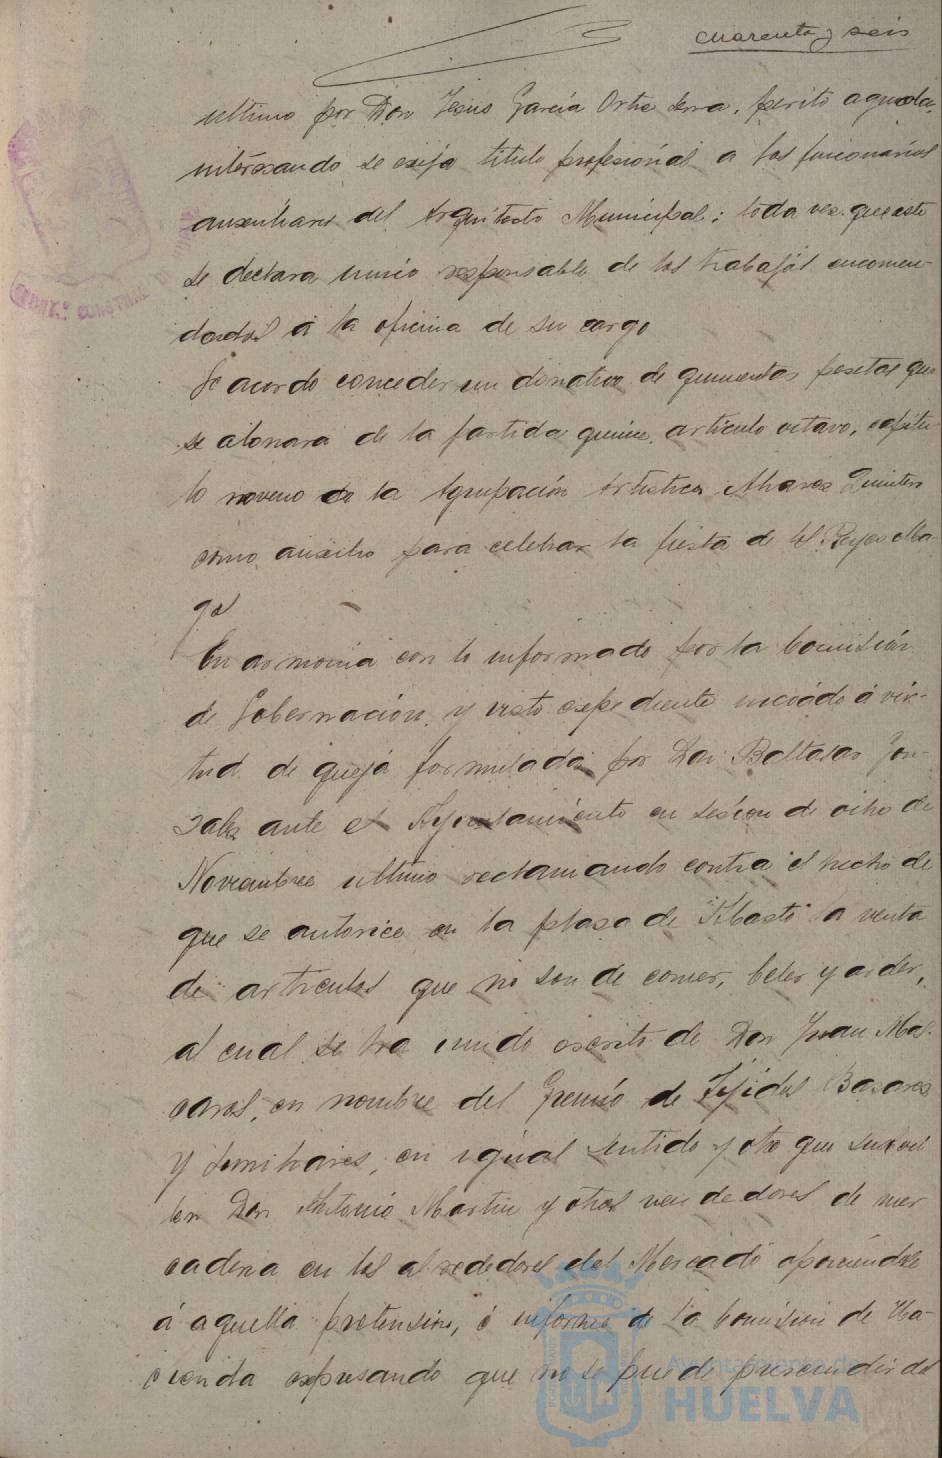 cuarenta y seis
ultimo por Don Jesus García Ortiz Serra, perito
interesando se exija titulo profesional a los funcionarios
auxiliares del Arquitecto Municipal; toda vez que este
se declara unico responsable de los trabajos encomen-
dados á la oficina de su cargo
Se acordo conceder un donativo de quinientas pesetas que
se abonará de la partida quince, articulo octavo, capitu-
lo noveno de la Agrupación Artistica Alvarez Quintero
como auxilio para celebrar la fiesta de los Reyes Ma-
gos
En armonia con lo informado por la Comisión
de Gobernación, y visto expediente incoado á vir-
tud de queja formulada por Don Baltasar Gon-
zalez ante el Ayuntamiento en sesion de ocho de
Noviembre ultimo reclamando contra el hecho de
que se autorice en la plaza de Abasto la venta
de articulos que no son de comer, beber y arder,
al cual se ha unido escrito de Don Juan Mas-
caros, en nombre del Gremio de Tejidos Bazares
y similares, en igual sentido y otro que suscri
ben Don Antonio Martin y otros vendedores de mer
caderia en los alrededores del Mercado oponiendose
á aquella pretension, é informe de la Comision de Ha-
cienda expresando que no se puede prescindir del
Ayuntamiento de
HUELVA